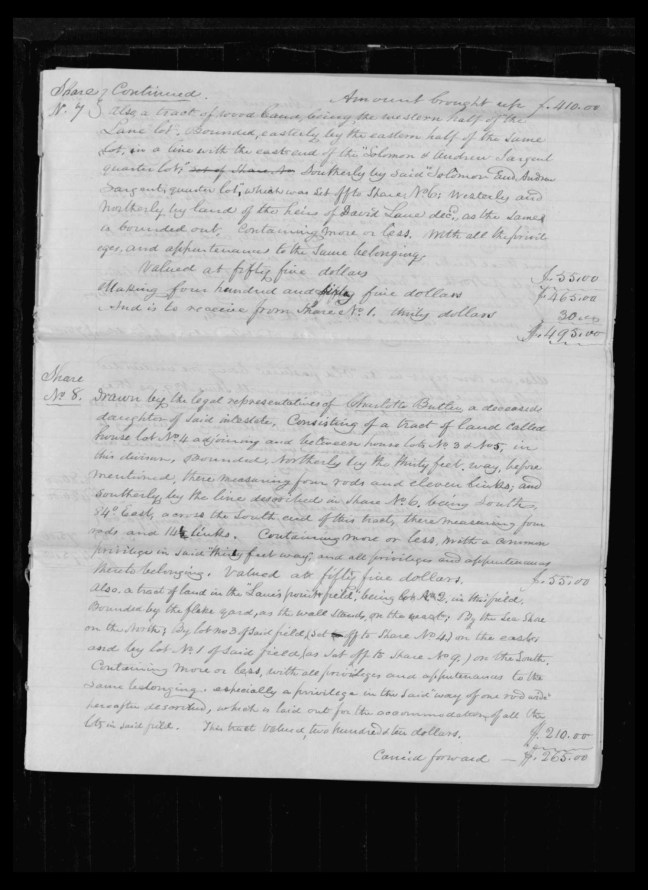 Share } Continued.
No. 7 Amount brought up $.410.00
Also a tract of wood land, being the western half of the
Lane lot. Bounded, easterly by the eastern half of the same
lot, in a line with the east end of the "Solomon & Andrew Sargent
quarter lot," Southerly by said "Solomon and Andrew
Sargent, quarter lot," which was set off to Share No. 6; Westerly and
Northerly by land of the heirs of David Lane dec., as the same
is bounded out, Containing more or less. With all the privil
eges, and appurtenances to the same belonging,
Valued at fifty five dollars $.55.00
Making four hundred and sixty five dollars $.465.00
And is to receive from Share No. 1. thirty dollars 30.00
$.495.00
Share
No. 8. Drawn by the legal representatives of Charlotte Butler, a deceased
daughter of said intestate, Consisting of a tract of land called
house lot No. 4 adjoining and between house lots No. 3 & No. 5, in
this division, Bounded, Northerly by the thirty feet, way, before
mentioned, there measuring four rods and eleven links; and
Southerly, by the line described in Share No. 6. being South,
84° East, across the South end of this tract, there measuring four
rods and 14 links. Containing more or less, with a common
privilege in said "thirty feet way," and all privileges and appurtenances
thereto belonging. Valued at fifty five dollars. $.55.00
Also. a tract of land in the "Lanes point field," being lot No. 2. in this field,
Bounded by the flake yard, as the wall stands, on the west; By the Sea Shore
on the North; By lot no 3 of said field, (set off to Share No. 4) on the east
and by lot No. 1 of said field, (as set off to Share No. 9.) on the South.
Containing more or less, with all privileges and appurtenances to the
same belonging. especially a privilege in the said "way of one rod wide"
hereafter described, which is laid out for the accommodation of all the
lots in said field. This tract valued, two hundred & ten dollars. $.210.00
Carried forward — $.265.00